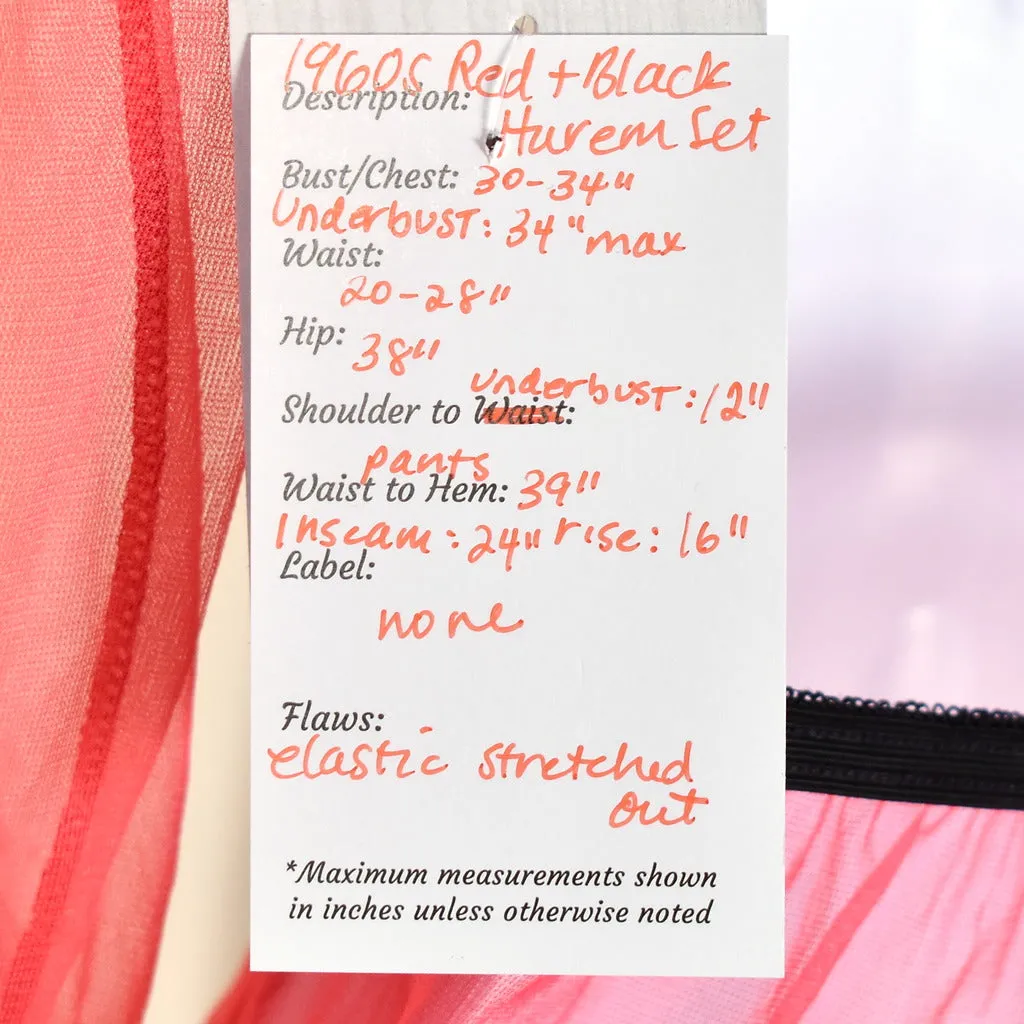 1960s Red + Black
Description:
Harem Set
Bust/Chest: 30-34"
Underbust: 34" max
Waist:
20-28"
Hip: 38"
underbust: 12"
Shoulder to Waist:
pants
Waist to Hem: 39"
Inseam: 24" rise: 16"
Label:
none
Flaws:
elastic stretched
out
*Maximum measurements shown
in inches unless otherwise noted